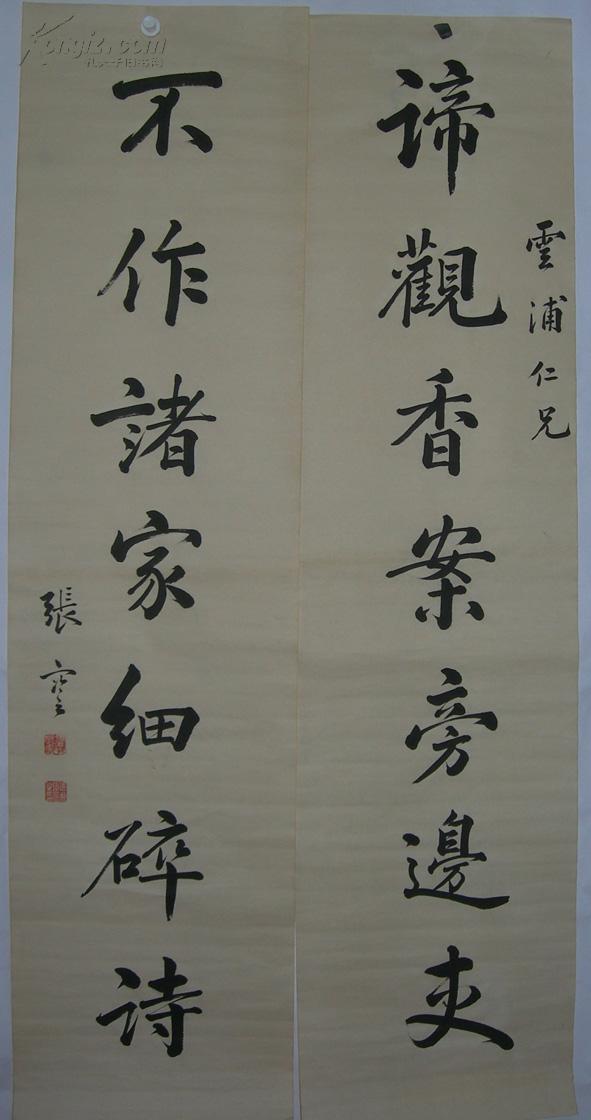 雲浦仁兄
諦觀香案旁邊吏
不作諸家細碎詩
張謇
Kongfz.com
孔夫子旧书网